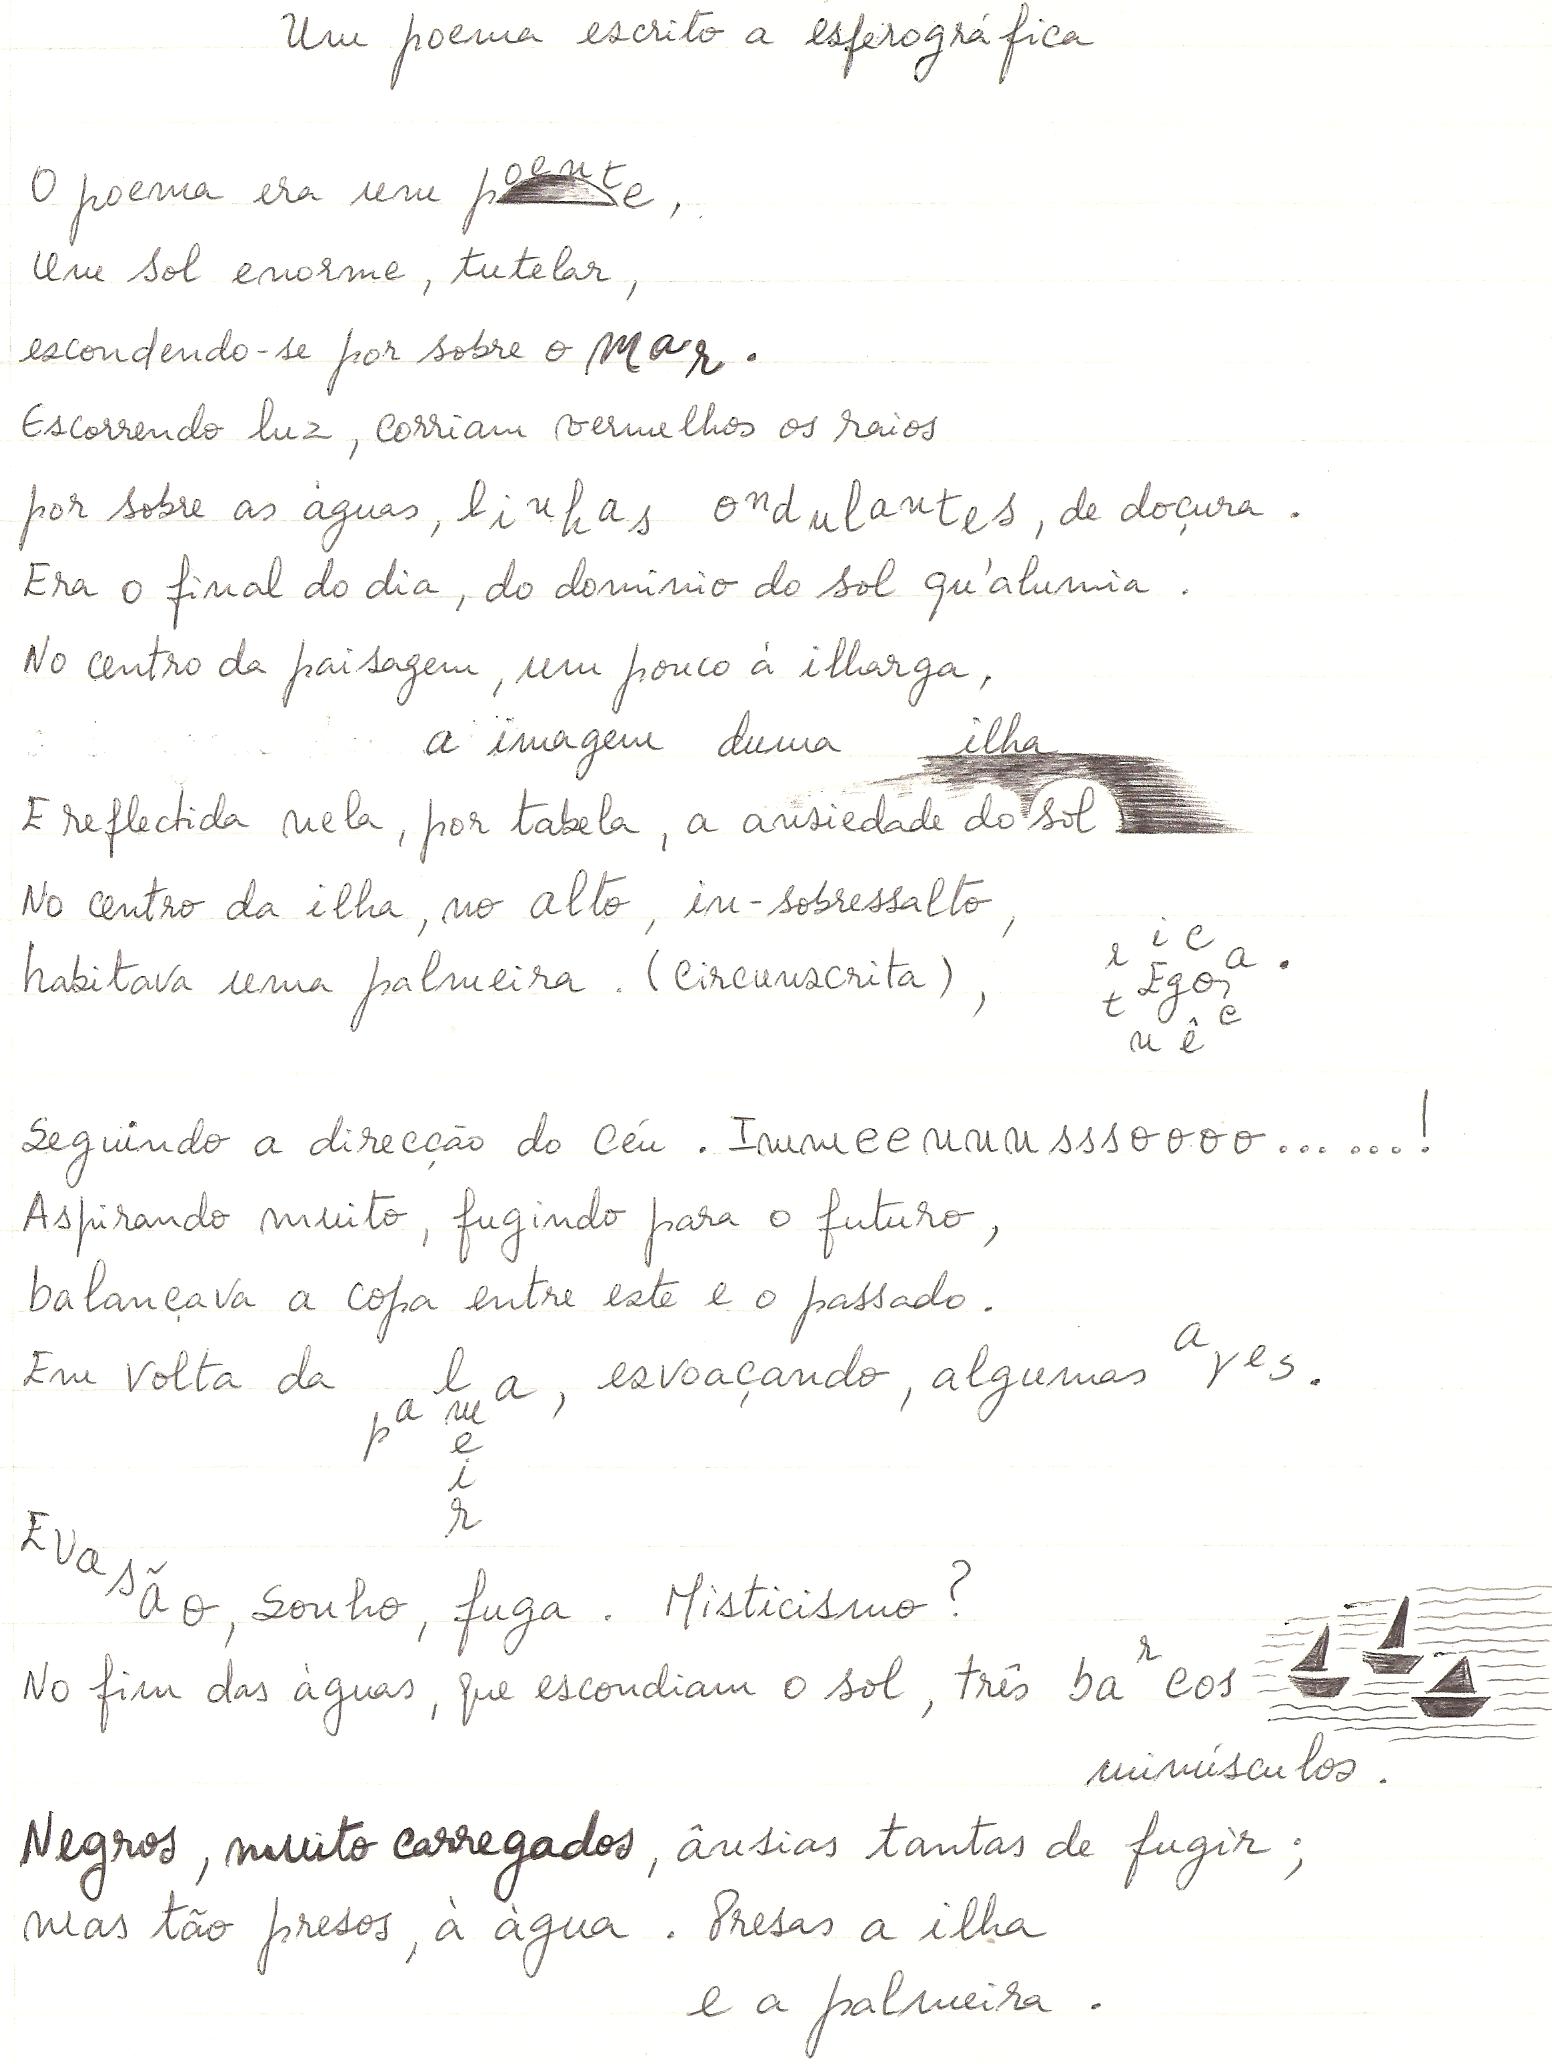 Um poema escrito a esferográfica
O poema era um poente,
Um sol enorme, tutelar,
escondendo-se por sobre o mar.
Escorrendo luz, corriam vermelhos os raios
por sobre as àguas, linhas ondulantes, de doçura.
Era o final do dia, do dominio do sol qu'alumia.
No centro da paisagem, um pouco à ilharga,
a imagem duma ilha
E reflectida nela, por tabela, a ansiedade do sol
No centro da ilha, no alto, in-sobressalto,
habitava uma palmeira. (Circunscrita), Egocêntrica.
Seguindo a direcção do céu. Immmeennnnsssoooo.......!
Aspirando muito, fugindo para o futuro,
balançava a copa entre este e o passado.
Em volta da palmeira, esvoaçando, algumas aves.
Evasão, sonho, fuga. Misticismo?
No fim das àguas, que escondiam o sol, três barcos
minúsculos.
Negros, muito carregados, ânsias tantas de fugir;
mas tão presos, à àgua. Presas a ilha
e a palmeira.